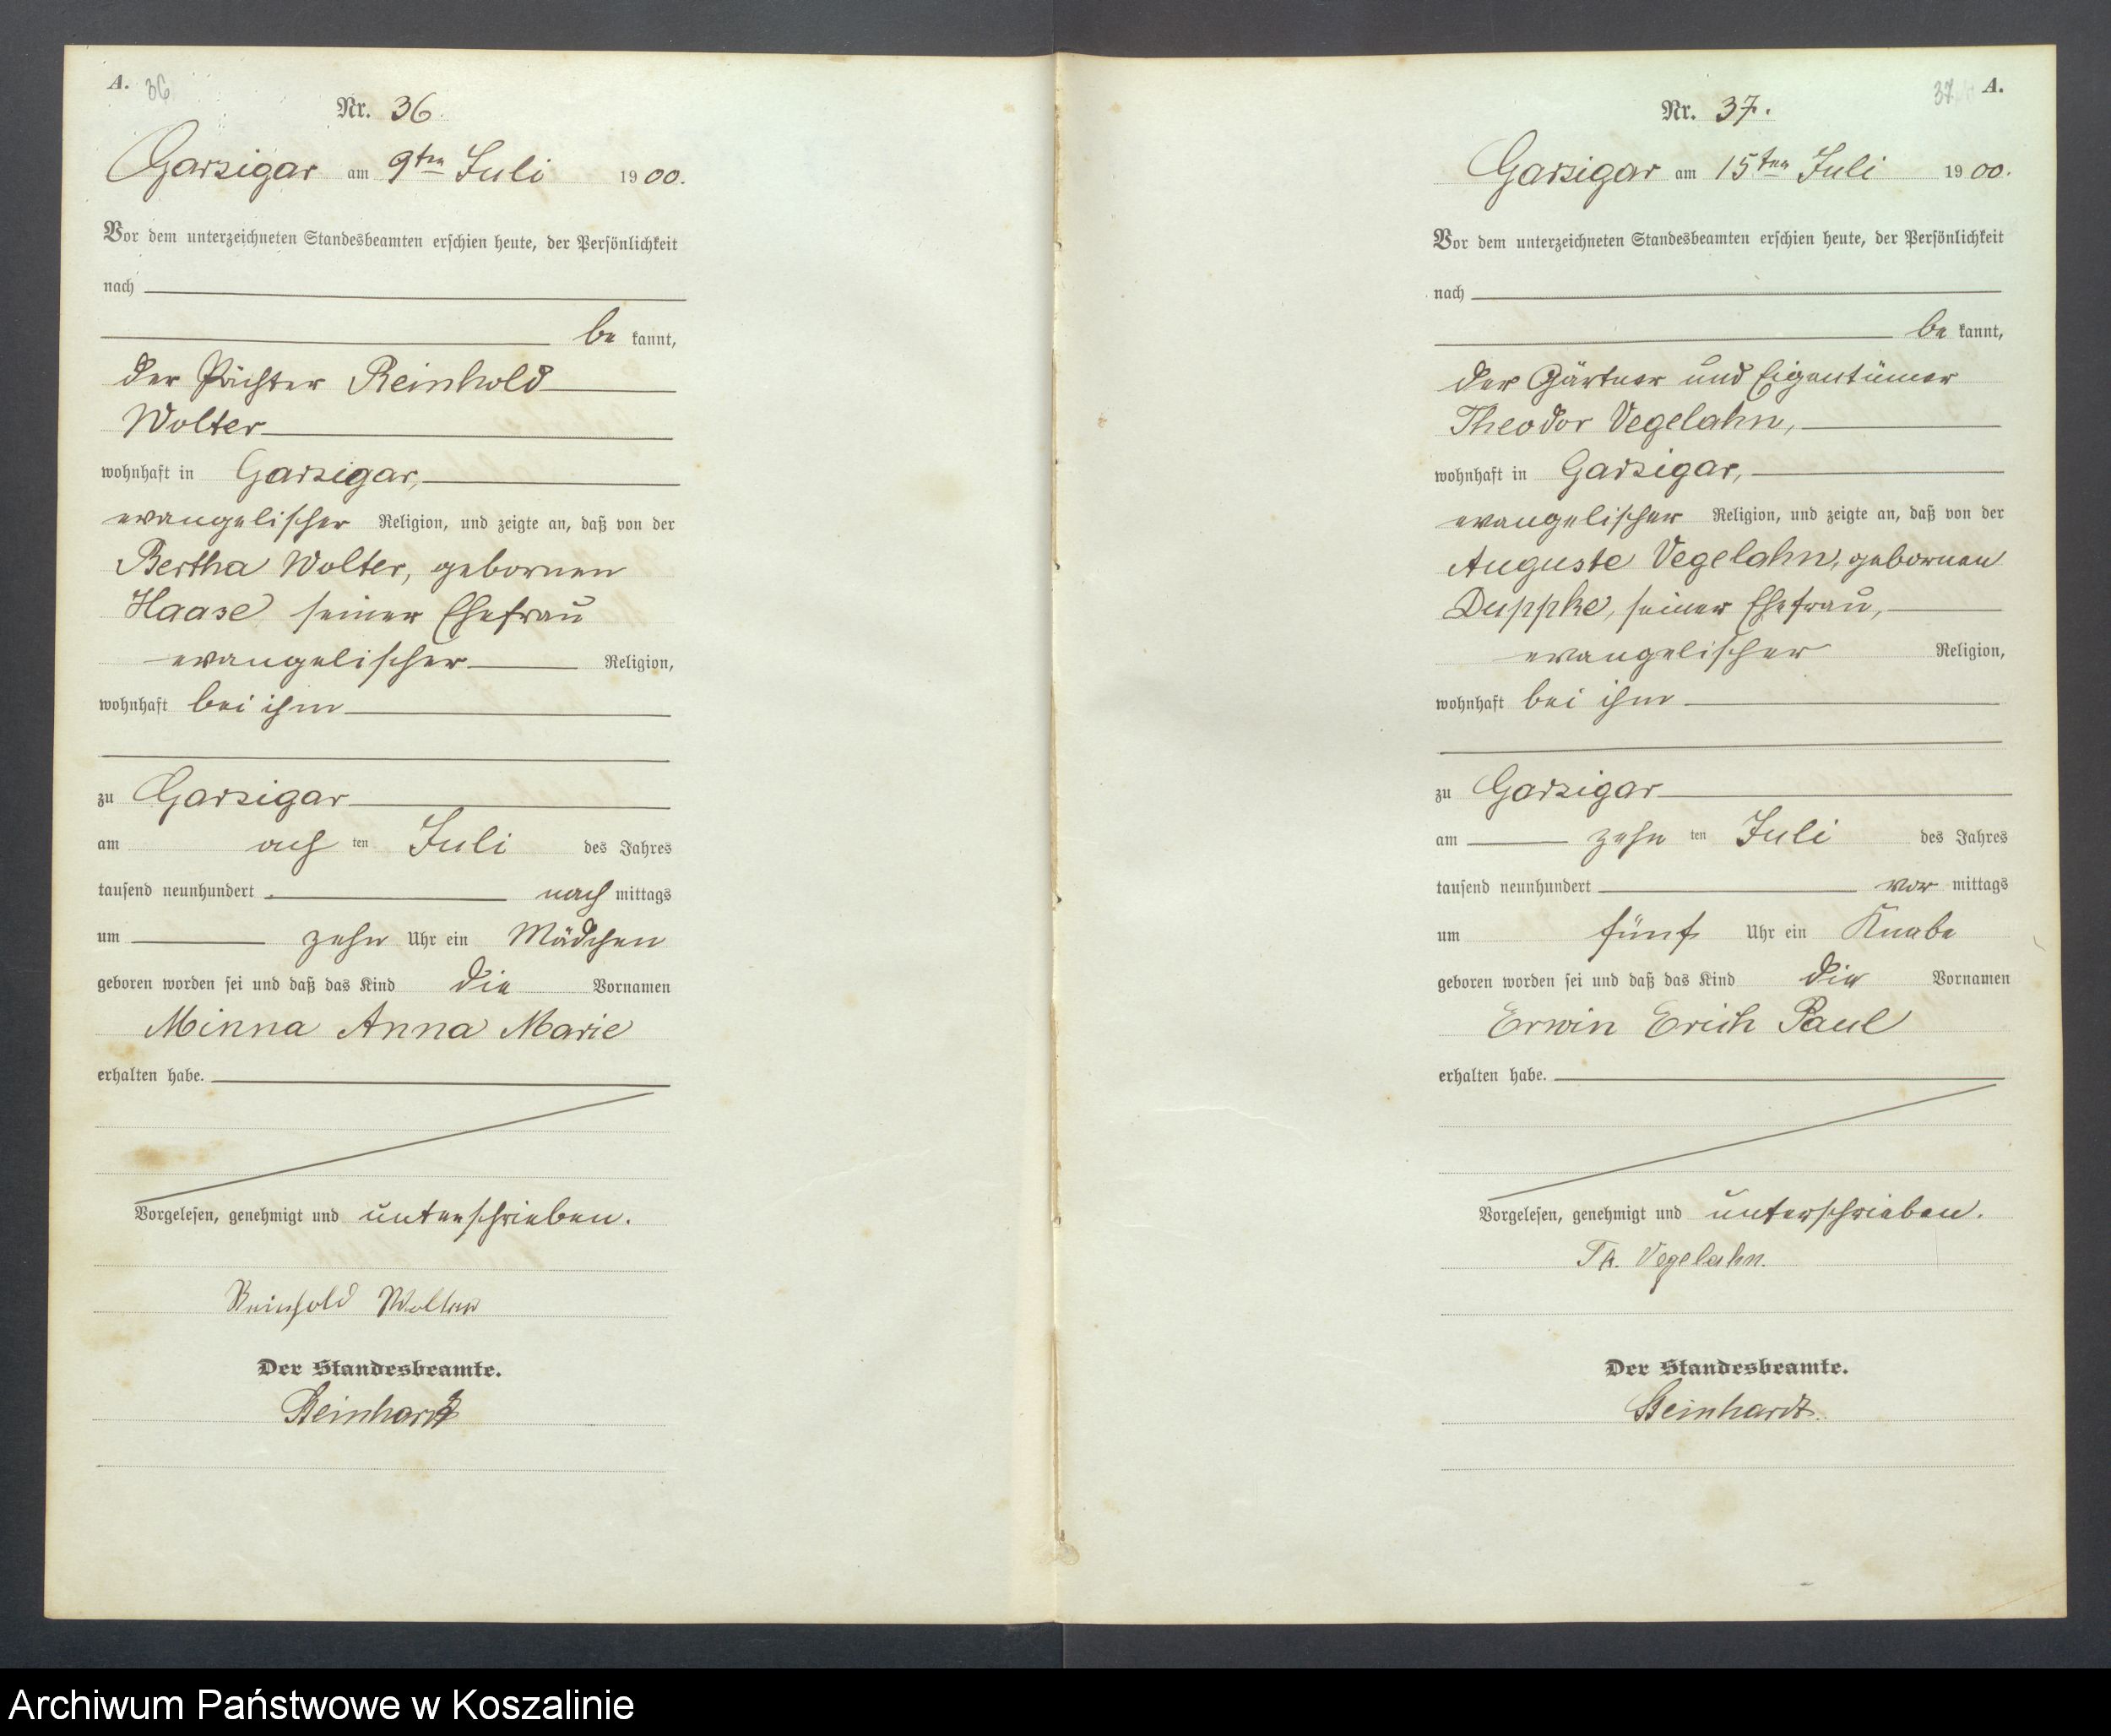 A. 36
Nr. 36.
Garzigar am 9ten Juli 1900.
Vor dem unterzeichneten Standesbeamten erschien heute, der Persönlichkeit
nach
be kannt,
der Pächter Reinhold
Wolter
wohnhaft in Garzigar,
evangelischer Religion, und zeigte an, daß von der
Bertha Wolter, gebornen
Haase seiner Ehefrau
evangelischer Religion,
wohnhaft bei ihm
zu Garzigar
am ach ten Juli des Jahres
tausend neunhundert nach mittags
um zehn Uhr ein Mädchen
geboren worden sei und daß das Kind die Vornamen
Minna Anna Marie
erhalten habe.
Vorgelesen, genehmigt und unterschrieben.
Reinhold Wolter
Der Standesbeamte.
Reinhardt
37 A.
Nr. 37.
Garzigar am 15ten Juli 1900.
Vor dem unterzeichneten Standesbeamten erschien heute, der Persönlichkeit
nach
be kannt,
der Gärtner und Eigentümer
Theodor Vegelahn,
wohnhaft in Garzigar,
evangelischer Religion, und zeigte an, daß von der
Auguste Vegelahn, gebornen
Duppke, seiner Ehefrau,
evangelischer Religion,
wohnhaft bei ihm
zu Garzigar
am zehn ten Juli des Jahres
tausend neunhundert vor mittags
um fünf Uhr ein Knabe
geboren worden sei und daß das Kind die Vornamen
Erwin Erich Paul
erhalten habe.
Vorgelesen, genehmigt und unterschrieben.
Th. Vegelahn.
Der Standesbeamte.
Reinhardt.
Archiwum Państwowe w Koszalinie